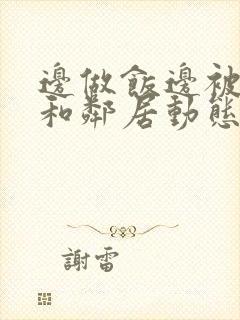 邊做飯邊被
和鄰居動態
謝雷